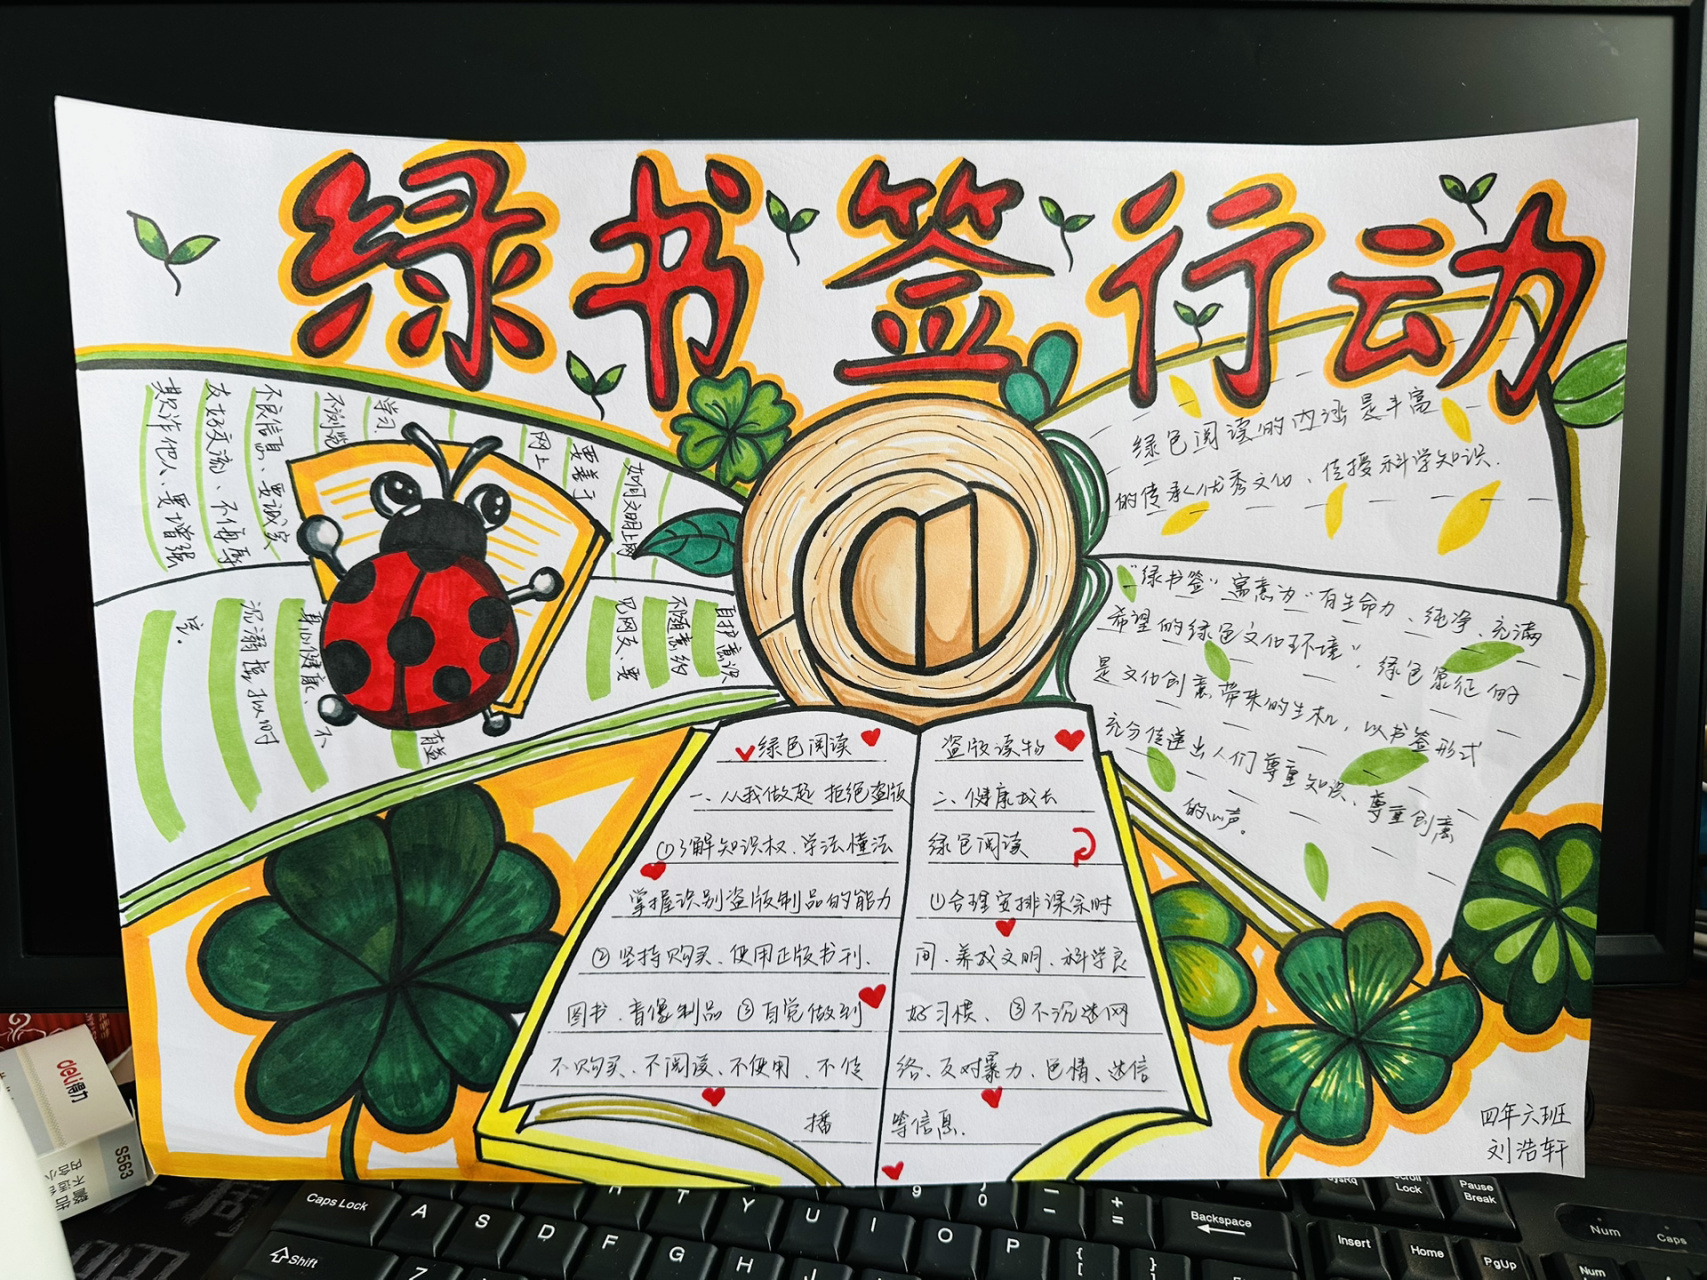 绿书签行动
如何文明上网
要善于
网上
学习
不浏览
不良信息、要诚实
友好交流、不侮辱
欺诈他人、要增强
自护意识
不随意约
见网友、要
有益
身心健康、不
沉溺虚拟时
空。
绿色阅读的内涵是丰富
的传承优秀文化、传授科学知识.
“绿书签”寓意为“有生命力、纯净、充满
希望的绿色文化环境”，绿色象征的
是文化创意带来的生机，以书签形式
充分传递出人们尊重知识、尊重创意
的心声。
绿色阅读
一、从我做起 拒绝盗版
①了解知识权、学法懂法
掌握识别盗版制品的能力
②坚持购买、使用正版书刊、
图书、音像制品 ③自觉做到
不购买、不阅读、不使用、不传
播
盗版读物
二、健康成长
绿色阅读
①合理安排课余时
间、养成文明、科学良
好习惯、③不沉迷网
络、反对暴力、色情、迷信
等信息.
四年六班
刘浩轩
deli得力
S563
Caps Lock
A
S
D
F
G
H
J
K
Shift
T
Y
U
I
O
P
Backspace
Insert
Home
PgUp
Scroll
Lock
Pause
Break
Num
Caps
Num